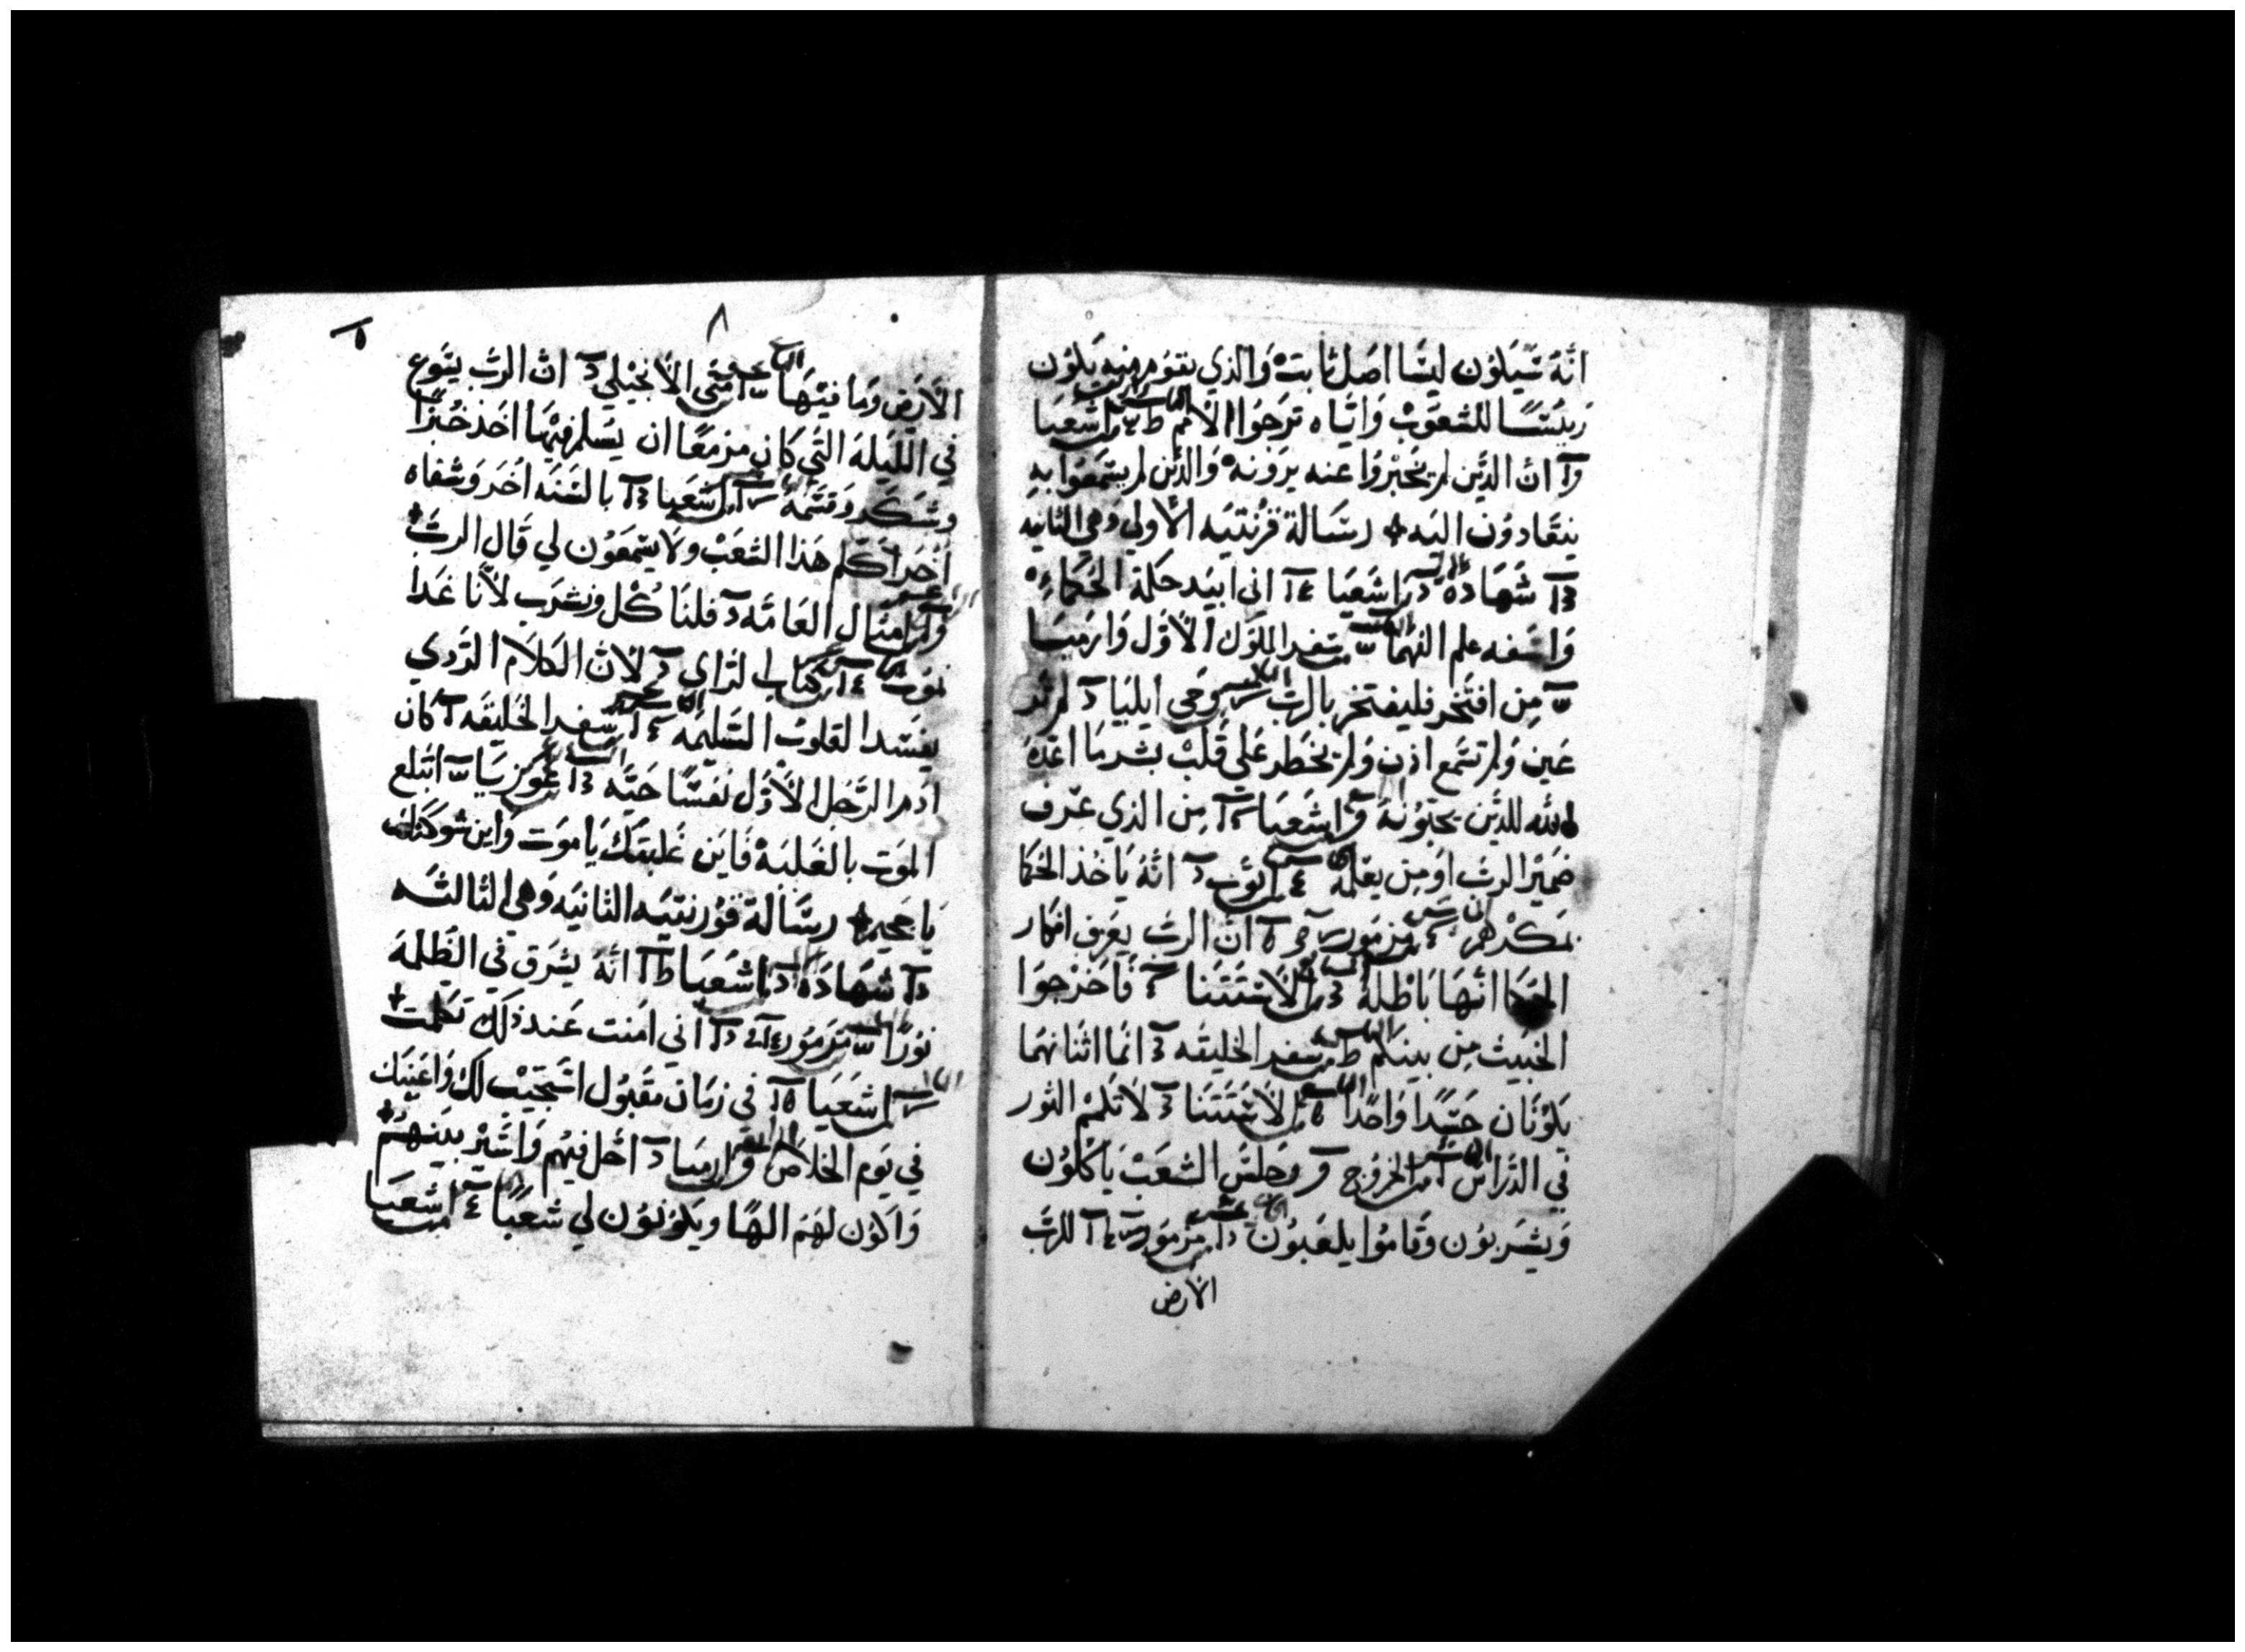 انَّهُ سَيَكُون ليَسَّا اصَل ثابتْ وَالذي يقوَم منهِ يَكون
رَييسًا للشعَوبْ وَايَّاه ترَجَوا الأمَم من اشعَيَا
ان الذَّين لم يُخْبَروا عنه يَرَوْنهُ وَالذين لم يسَمعَوا بهِ
ينقادوُن اليَه ✢ رسَالة قرُنتيَه الأولي وَهي الثانيه
شَهَادهْ من اشَعَيَا اني ابيَد حكمة الحكماء
وَاسَفه علم الفهما من سفر الملوك الاوّل وَارَميَا
مِن افتَخر فليفتخر بالربْ وحي ايليَا لم تر
عَين وَلم تسَمع اذن وَلم يخطر عَلي قَلبْ بشر مَا اعَدّه
الله للذين يحبّوُنهُ من اشعَيَا مِن الذي عَرف
ضميَر الربْ اوَ مِن يعَلمهُ من ايوَب انهُ يَاخُذ الحكما
بمكْرهم من مزمَور انّ الربْ يعَرف افكار
الحكمَا انَّهَا بَاطْلهُ من الاسَتَثنا فَاخرَجوَا
الخبَيث مِن بينكم من سفر الخليقه انَّما اثنانهَما
يَكوُنَان جَسَدًا وَاحدًا من الاسَتَثنَا لاَ تكم الثور
في الدَّراسْ من الخروُج وجَلسَ الشعَبْ يَاكلوُن
وَيشَربوُن وقَاموُا يلعَبوُن من مزمَور للربّ
الأرض
٨
الأرَض وَمَا فيَهَا من متَي الأنجيْلي ان الربْ يسَوع
في اللّيَلة التَي كَان مزمَعًا ان يسَلم فيهَا اخَذ خبزًا
وشَكَر وَقسَّمهُ من اشعَيا بالسَنَه اخَر وَشفاه
اخَر اكَلم هَذا الشعَبْ ولاَ يسَمعَوُن لي قَال الربْ ✢
من امثال العَامَّه فلنَا كُل ونشرَب لأنا غَدًا
نموُت من كتاب لنراي لأن الكَلاَم الرَدي
يفسَد القلوبْ السَليمَه من سفر الخليقَه كَان
ادَم الرَّجَل الأوُل نفسًا حَيَّه من عَوُزيَا ابَتلع
الموَت بالغلبَهْ فَاين غَلبتكَ يَا موَت وَاين شوكتك
يَا جَحيم ✢ رسَالة قوُرنتيَه الثانيَه وَهي الثالثَه
شهَادَة من اشعَيَا انهُ يشَرق في الظلمَة
نوُرًا من مزمَوُر اني امَنت عَند ذلك تكلمت ✢
من اشعَيَا في زمَان مقَبوُل اسَتجَيبْ لك وَاعَينَك
في يَوم الخلاَص من ارميا احَل فيَهم وَاسَيْر بيَنهَمُ ✢
وَاكَوُن لهَمُ الهًا ويكوُنوُن لي شعَبًا من اشعَيَا